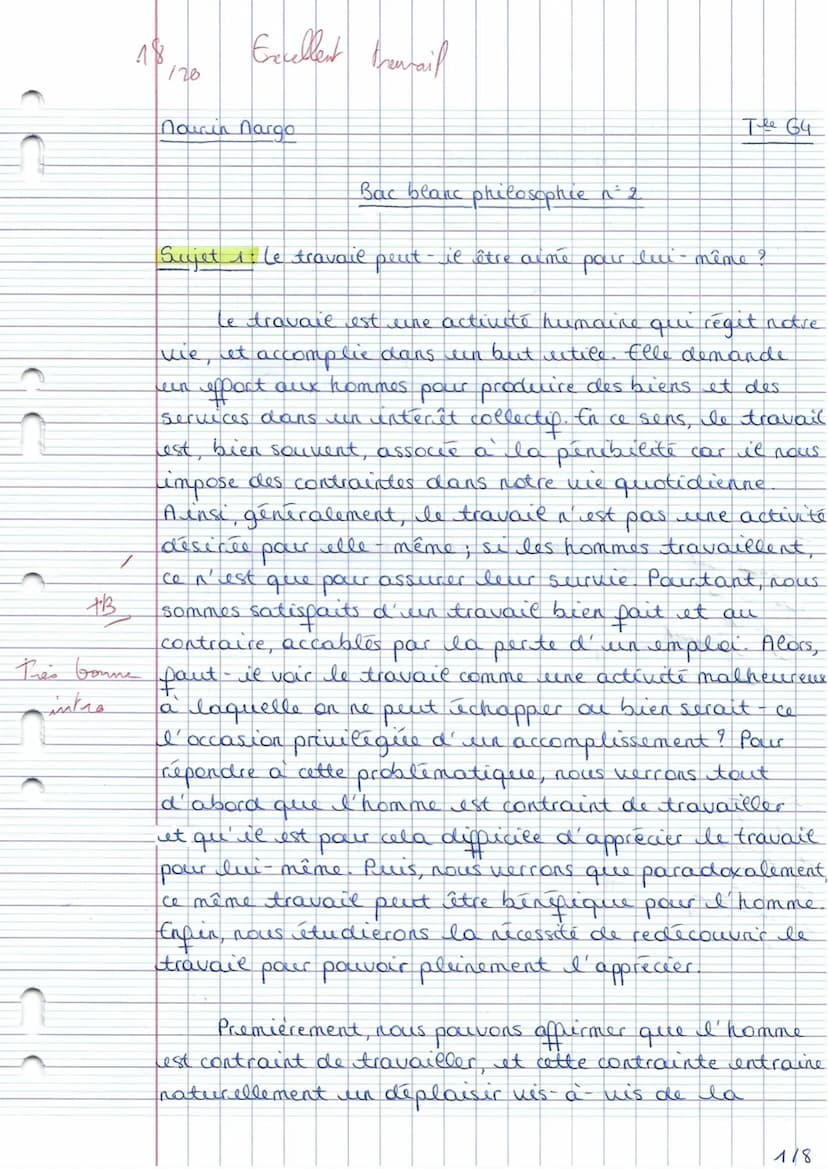 18/20 Excellent travail
Mourin Margo Tle G4
Bac blanc philosophie n°2
Sujet 1: Le travail peut-il être aimé pour lui-même ?
Le travail est une activité humaine qui régit notre
vie, et accomplie dans un but utile. Elle demande
un effort aux hommes pour produire des biens et des
services dans un intérêt collectif. En ce sens, le travail
est, bien souvent, associé à la pénibilité car il nous
impose des contraintes dans notre vie quotidienne.
Ainsi, généralement, le travail n'est pas une activité
désirée pour elle-même ; si les hommes travaillent,
ce n'est que pour assurer leur survie. Pourtant, nous
TB
sommes satisfaits d'un travail bien fait et au
contraire, accablés par la perte d'un emploi. Alors,
Très bonne
faut-il voir le travail comme une activité malheureux
intro
à laquelle on ne peut échapper ou bien serait-ce
l'occasion privilégiée d'un accomplissement ? Pour
répondre à cette problématique, nous verrons tout
d'abord que l'homme est contraint de travailler
et qu'il est pour cela difficile d'apprécier le travail
pour lui-même. Puis, nous verrons que paradoxalement,
ce même travail peut être bénéfique pour l'homme.
Enfin, nous étudierons la nécessité de redécouvrir le
travail pour pouvoir pleinement l'apprécier.
Premièrement, nous pouvons affirmer que l'homme
est contraint de travailler, et cette contrainte entraine
naturellement un déplaisir vis-à-vis de la
1/8